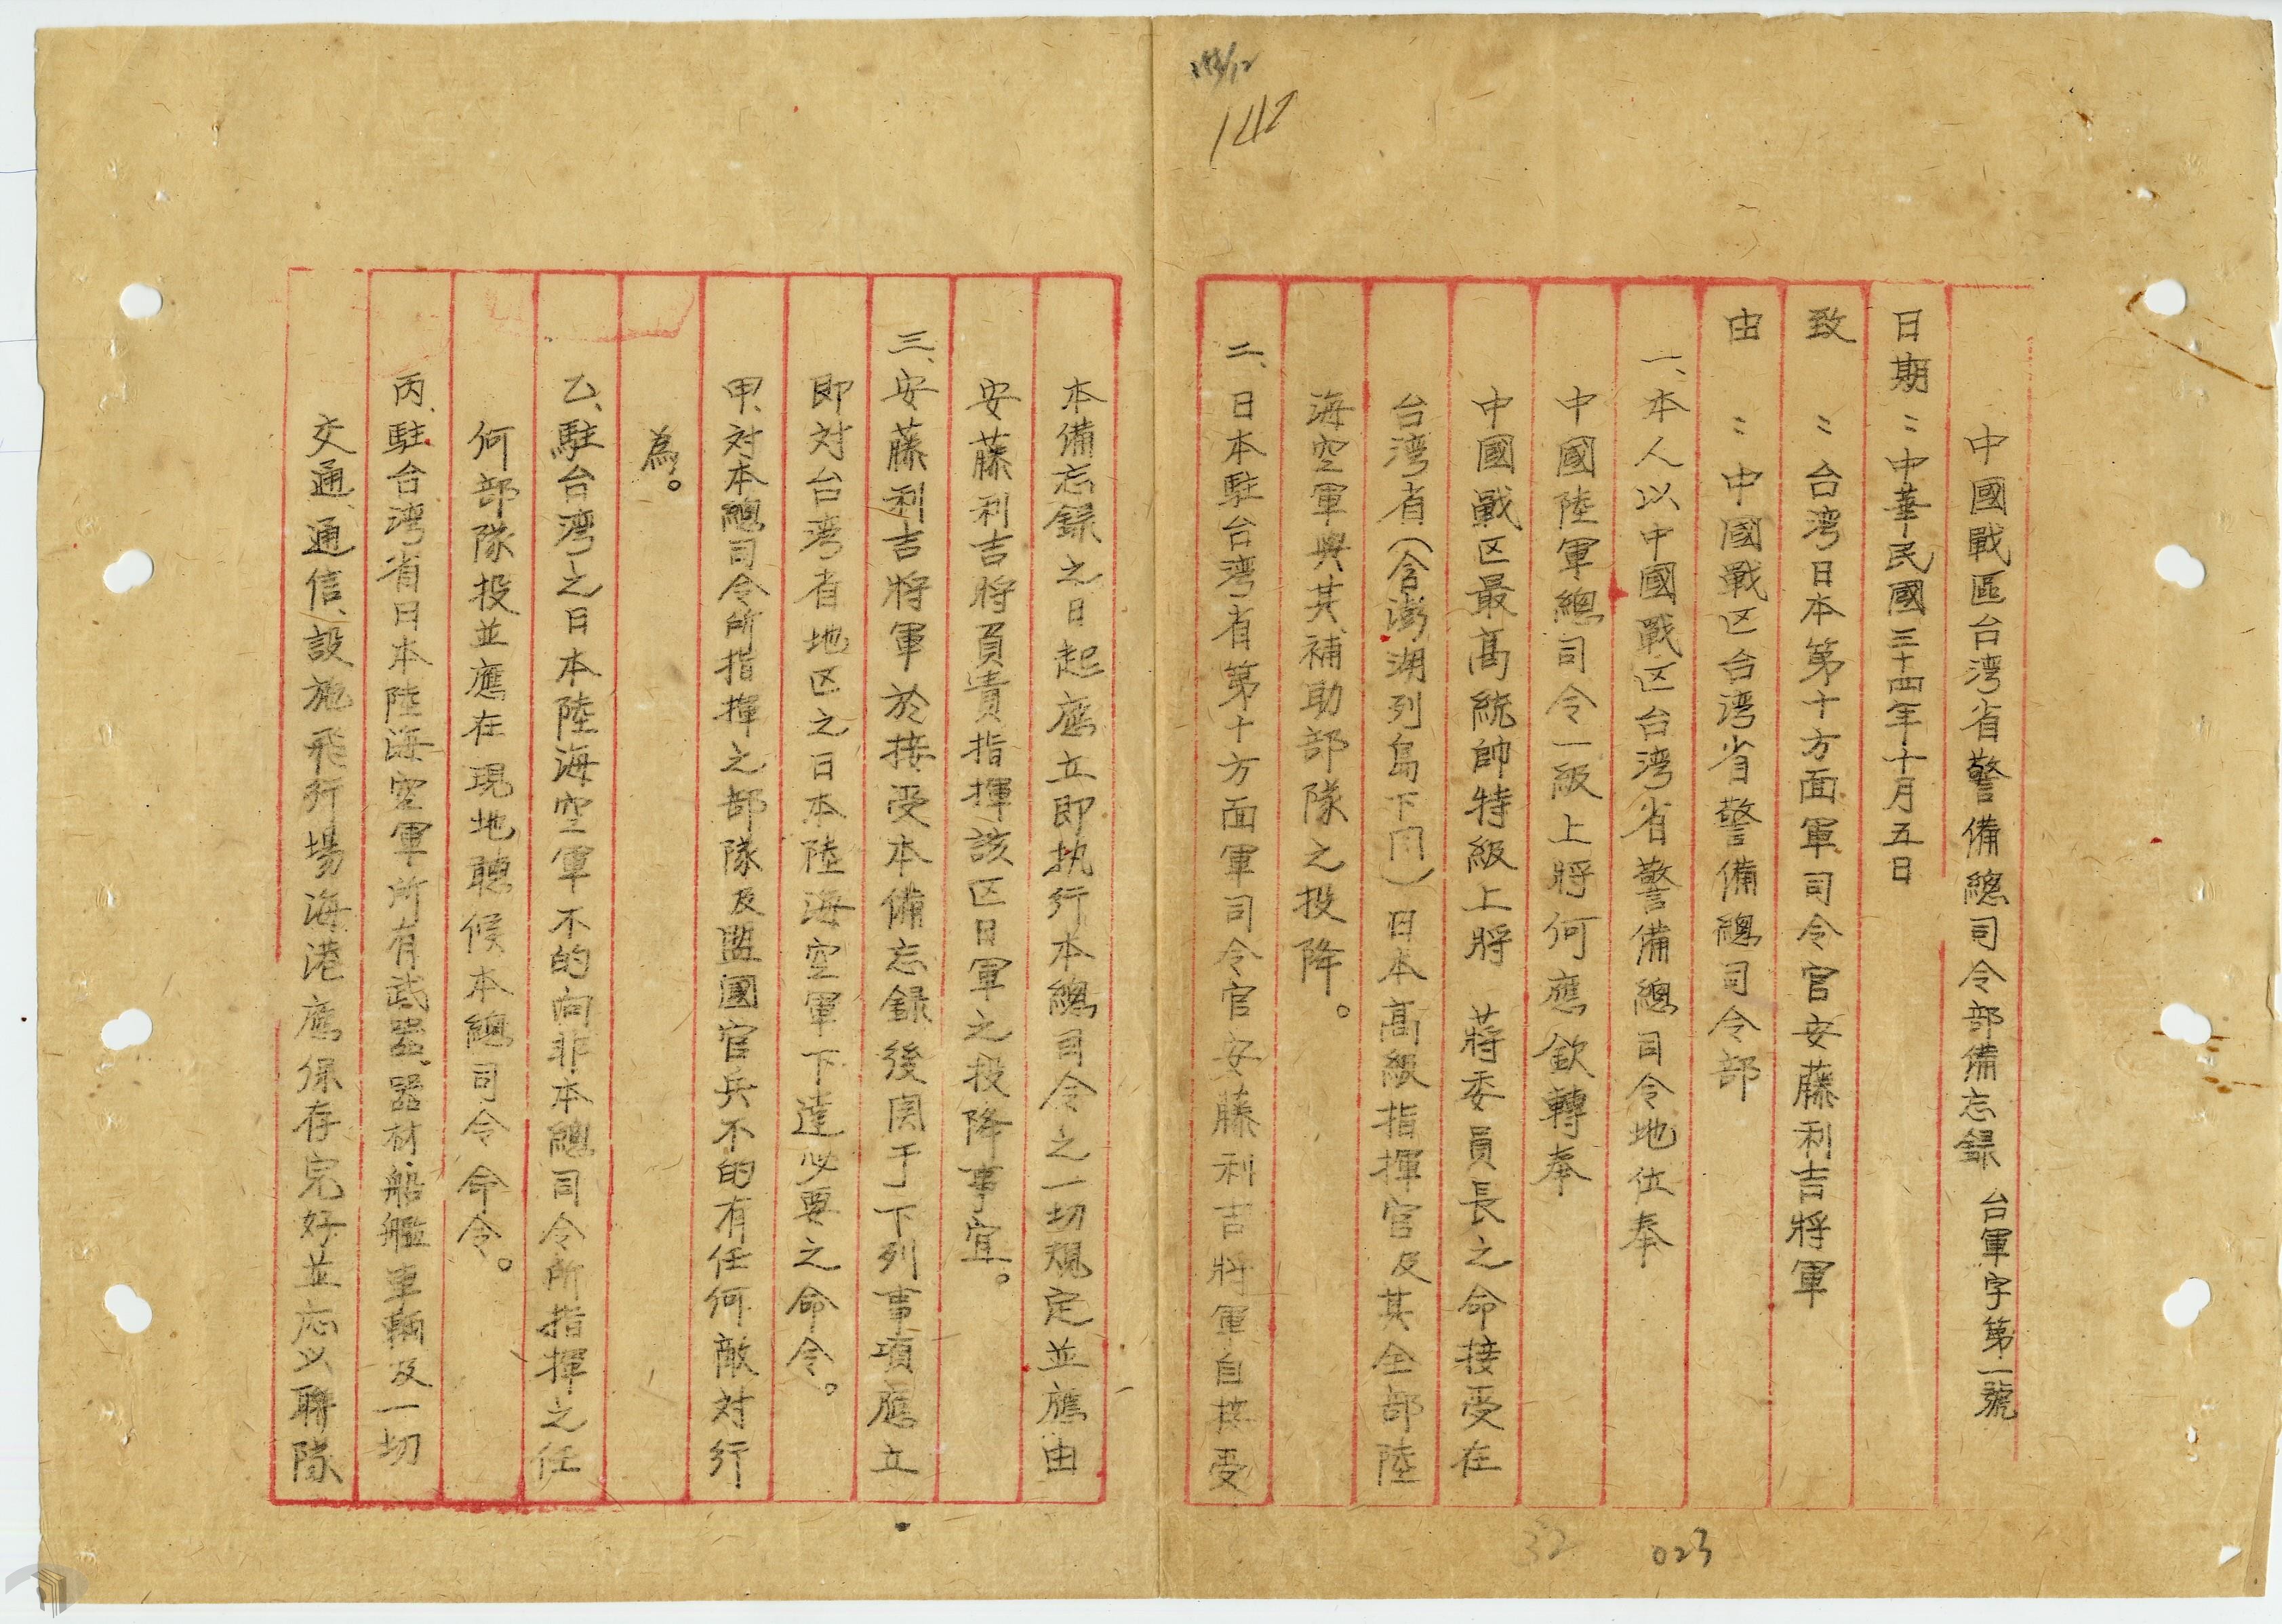 中國戰區台湾省警備總司令部備忘録 台軍字第一號
日期：中華民國三十四年十月五日
致：台湾日本第十方面軍司令官安藤利吉將軍
由：中國戰区台湾省警備總司令部
一、本人以中國戰区台湾省警備總司令地位奉
中國陸軍總司令一級上將何應欽轉奉
中國戰区最高統帥特級上將 蔣委員長之命接受在
台湾省（含澎湖列島下同）日本高級指揮官及其全部陸
海空軍與其補助部隊之投降。
二、日本駐台湾省第十方面軍司令官安藤利吉將軍自接受
本備忘録之日起應立即执行本總司令之一切規定並應由
安藤利吉將負責指揮該区日軍之投降事宜。
三、安藤利吉將軍於接受本備忘録後関于下列事項應立
即対台湾省地区之日本陸海空軍下達必要之命令。
甲、対本總司令所指揮之部隊及盟國官兵不的有任何敵対行
為。
乙、駐台湾之日本陸海空軍不的向非本總司令所指揮之任
何部隊投並應在現地聽候本總司令命令。
丙、駐台湾省日本陸海空軍所有武器、器材船艦車輛及一切
交通、通信、設施飛行場海港應保存完好並忘以聯隊
023
32
142